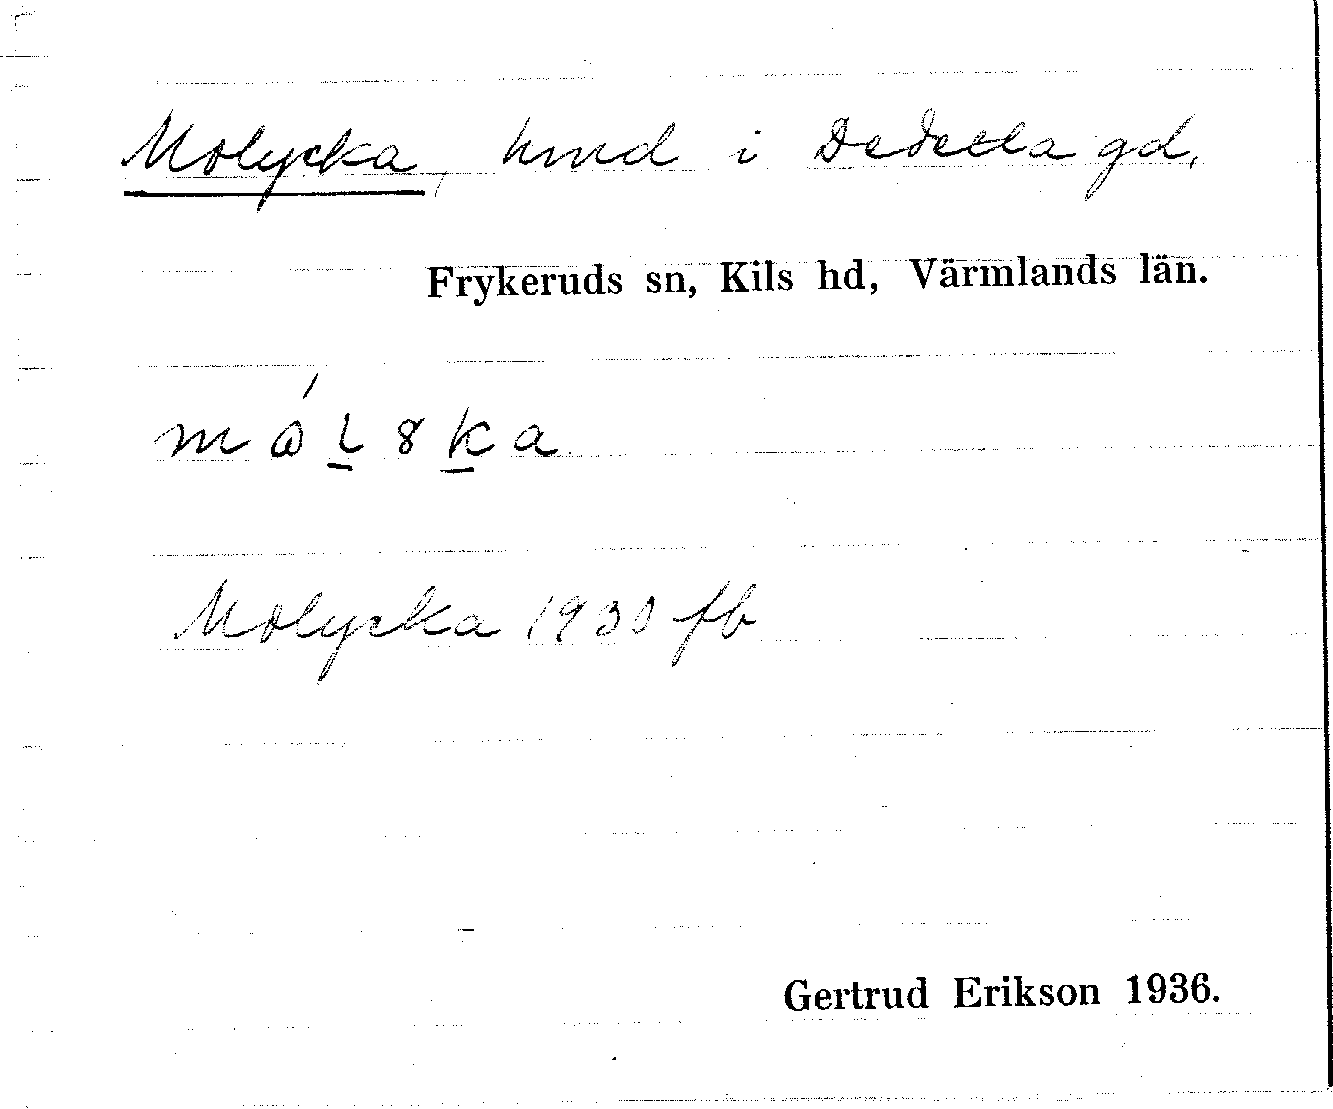 Molycka, hmd i Dedesta gd,
Frykeruds sn, Kils hd, Värmlands län.
Molycka 1930 fb
Gertrud Erikson 1936.